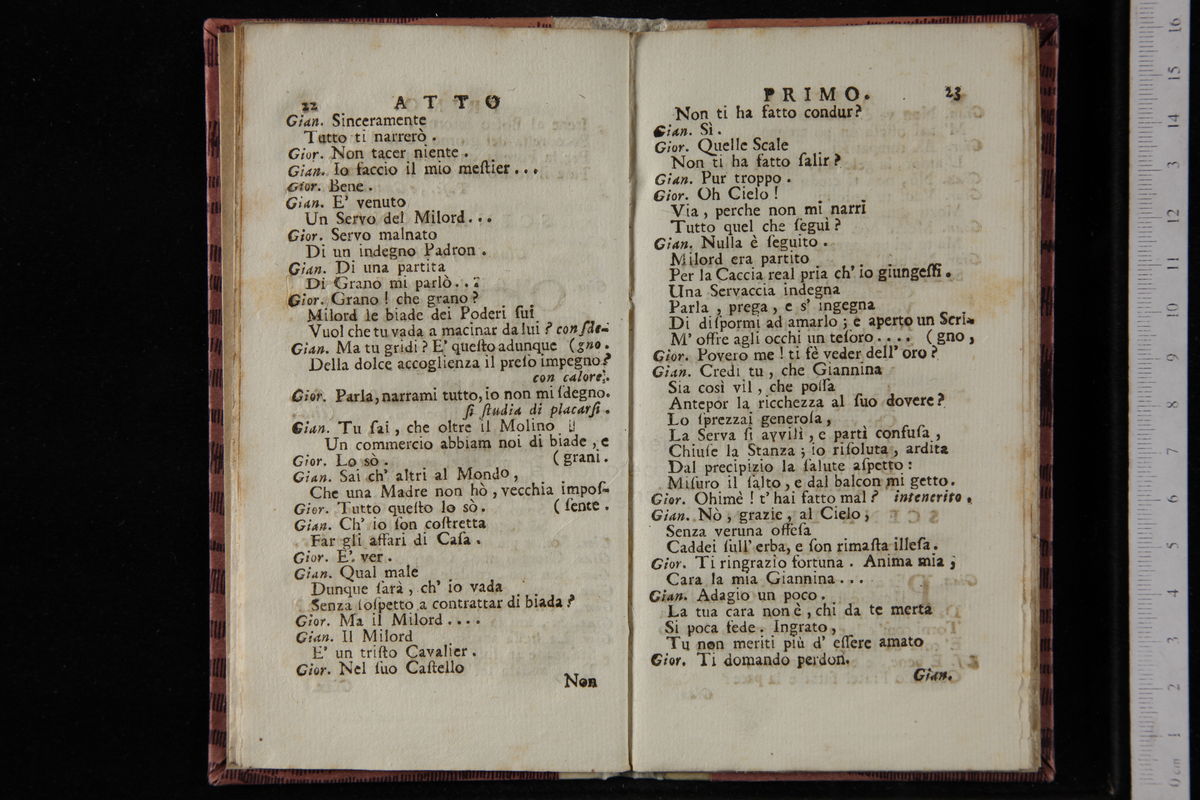 22 ATTO
Gian. Sinceramente
Tutto ti narrerò .
Gior. Non tacer niente .
Gian. Io faccio il mio meſtier . . .
Gior. Bene .
Gian. E' venuto
Un Servo del Milord . . .
Gior. Servo malnato
Di un indegno Padron .
Gian. Di una partita
Di Grano mi parlò . . :
Gior. Grano ! che grano ?
Milord le biade dei Poderi ſui
Vuol che tu vada a macinar da lui ? con ſde-
Gian. Ma tu gridi ? E' queſto adunque (gno .
Della dolce accoglienza il preſo impegno ?
con calore .
Gior. Parla, narrami tutto, io non mi ſdegno.
ſi ſtudia di placarſi .
Gian. Tu ſai , che oltre il Molino
Un commercio abbiam noi di biade , e
Gior. Lo sò . ( grani .
Gian. Sai ch' altri al Mondo ,
Che una Madre non hò , vecchia impoſ-
Gior. Tutto queſto lo sò . ( ſente .
Gian. Ch' io ſon coſtretta
Far gli affari di Caſa .
Gior. E'. ver .
Gian. Qual male
Dunque ſarà , ch' io vada
Senza ſoſpetto a contrattar di biada ?
Gior. Ma il Milord . . . .
Gian. Il Milord
E' un triſto Cavalier .
Gior. Nel ſuo Caſtello
Non
PRIMO. 23
Non ti ha fatto condur ?
Gian. Sì .
Gior. Quelle Scale
Non ti ha fatto ſalir ?
Gian. Pur troppo .
Gior. Oh Cielo !
Via , perche non mi narri
Tutto quel che ſeguì ?
Gian. Nulla è ſeguito .
Milord era partito
Per la Caccia real pria ch' io giungeſſi .
Una Servaccia indegna
Parla , prega , e s' ingegna
Di diſpormi ad amarlo ; e aperto un Scri-
M' offre agli occhi un teſoro . . . . ( gno ,
Gior. Povero me ! ti fè veder dell' oro ?
Gian. Credi tu , che Giannina
Sia così vil , che poſſa
Antepor la ricchezza al ſuo dovere ?
Lo ſprezzai generoſa ,
La Serva ſi avvilì , e partì confuſa ,
Chiuſe la Stanza ; io riſoluta , ardita
Dal precipizio la ſalute aſpetto :
Miſuro il ſalto , e dal balcon mi getto .
Gior. Ohimè ! t' hai fatto mal ? intenerito .
Gian. Nò , grazie , al Cielo ,
Senza veruna offeſa
Caddei ſull' erba, e ſon rimaſta illeſa .
Gior. Ti ringrazio fortuna . Anima mia ;
Cara la mia Giannina . . .
Gian. Adagio un poco .
La tua cara non è , chi da te merta
Si poca fede . Ingrato ,
Tu non meriti più d' eſſere amato
Gior. Ti domando perdon.
Gian.